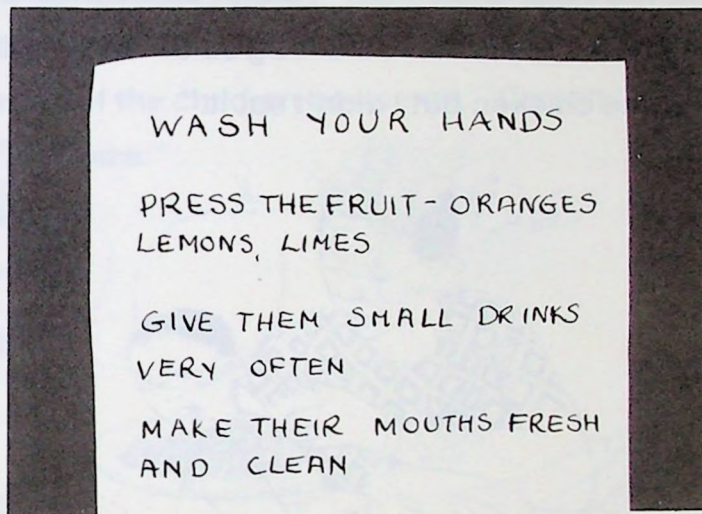 WASH YOUR HANDS
PRESS THE FRUIT - ORANGES
LEMONS, LIMES
GIVE THEM SMALL DRINKS
VERY OFTEN
MAKE THEIR MOUTHS FRESH
AND CLEAN